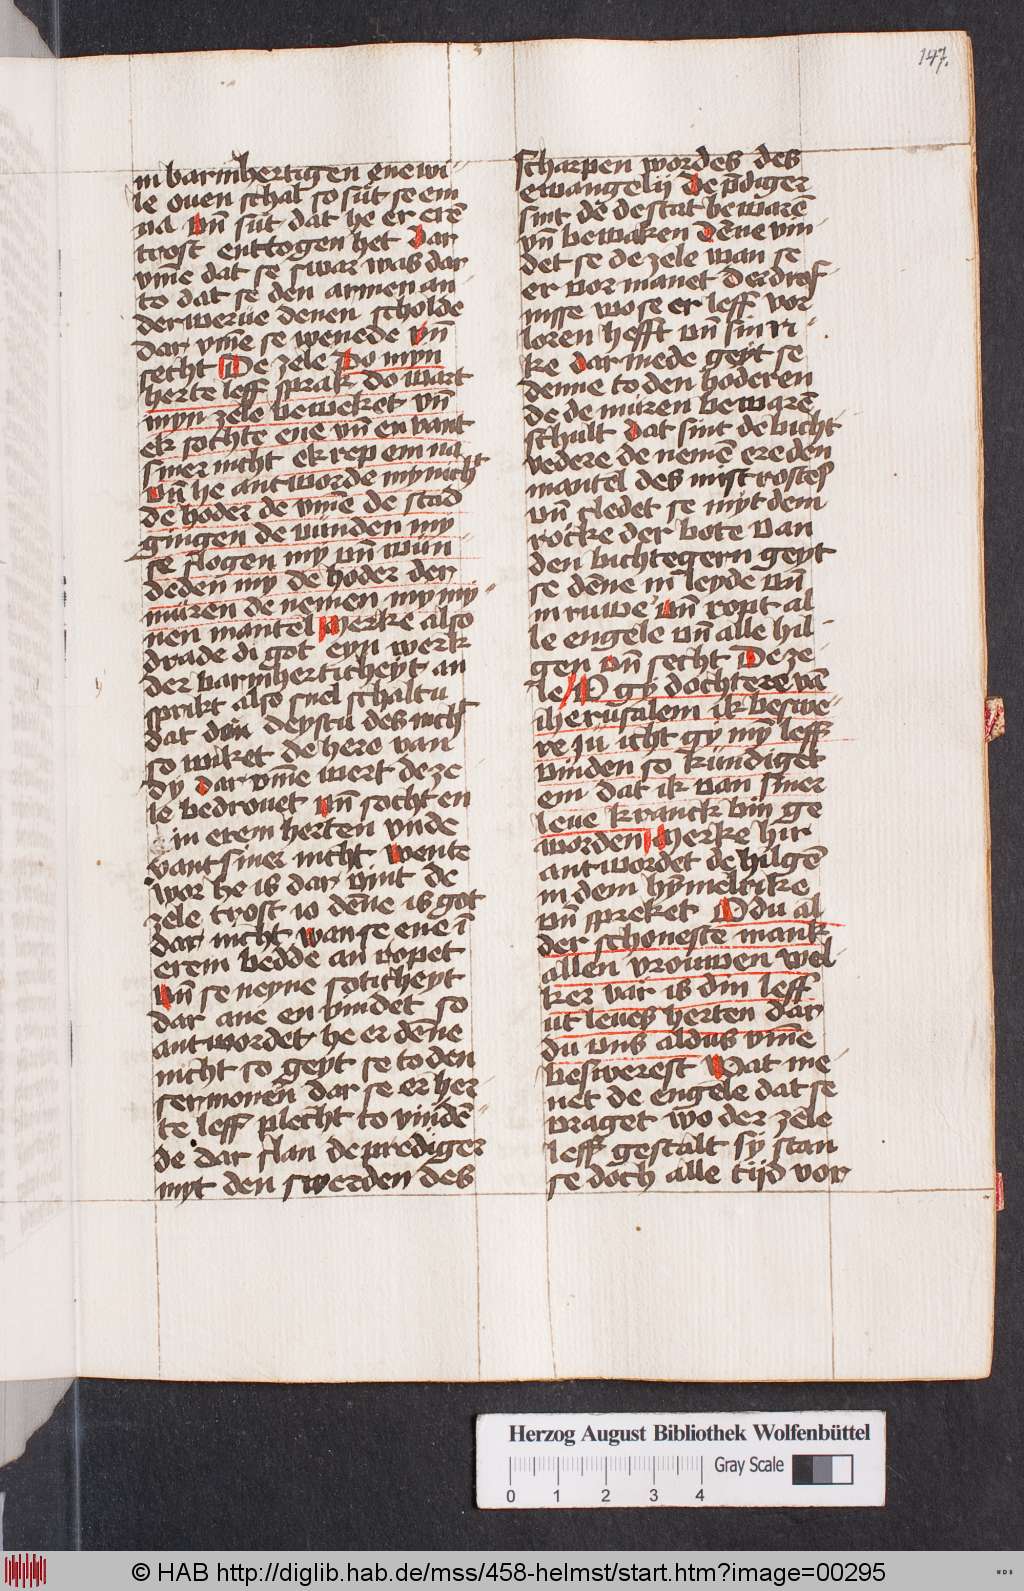 147.
in barmhertigen ene wi-
le ouen schal so sut se em
na vn̄ sut dat he er erē
trost enttogen het Dar
vm̄e dat se swar was dar
to dat se den armen an
der werue denen scholde
dar vm̄e se wenede vn̄
secht De zele Do myn
herte leff sprak do wart
myn zele beweket vn̄
ek sochte ene vn̄ en vant
siner nicht ek rep em na
vn̄ he antworde my nicht
de hoder de vm̄e de stad
gingen de vunden my
se slogen my vn̄ wun-
deden my de hoder der
muren de nemen my my-
nen mantel Merke also
drade di got eyn werk
der barmherticheyt an
sprikt also snel schaltu
dat don deystu des nicht
so wiket de here van
dy Dar vm̄e wert de ze
le bedrouet vn̄ socht en
in erem herten vnde
vant siner nicht Wente
wor he is dar vint de
zele trost io dēne is got
dar nicht wan se ene ī
erem bedde an ropet
vn̄ se neyne soticheyt
dar ane en bindet so
antwordet he er dēne
nicht so geyt se to den
sermonen dar se er her
te leff plecht to vindē-
de dar slan de prediger
myt den swerden des
scharpen wordes des
ewangelij De p̄diger
sint de de stat bewarē
vn̄ bewaken Dēne vin-
det se de zele wan se
er vor manet der drof-
nisse wo se er leff vor
loren hefft vn̄ sin ri-
ke dar mede geyt se
denne to den hoderen
de de muren bewarē
schult Dat sint de bicht
vedere de nemē ere den
mantel des mistrostes
vn̄ cledet se myt dem
rocke der bote van
den bichtegern geyt
se dēne in leyde vn̄
in ruwe vn̄ ropt al
le engele vn̄ alle hil-
gen vn̄ secht De ze-
le O gy dochtere vā
iherusalem ik beswe-
re iu icht gy my leff
vinden so kundiget
em dat ik van siner
leue kranck bin ge
worden Merke hir
antwordet de hilgē
in dem hymelrike
vn̄ spreket O du al
der schoneste mank
allen vrouwen wel-
ker var is din leff
ut leues herten dar
du vns aldus vm̄e
beswerest Wat me-
net de engele dat se
vraget wo der zele
leff gestalt sy stan
se doch alle tijd vor
Herzog August Bibliothek Wolfenbüttel
Gray Scale
0 1 2 3 4
© HAB http://diglib.hab.de/mss/458-helmst/start.htm?image=00295